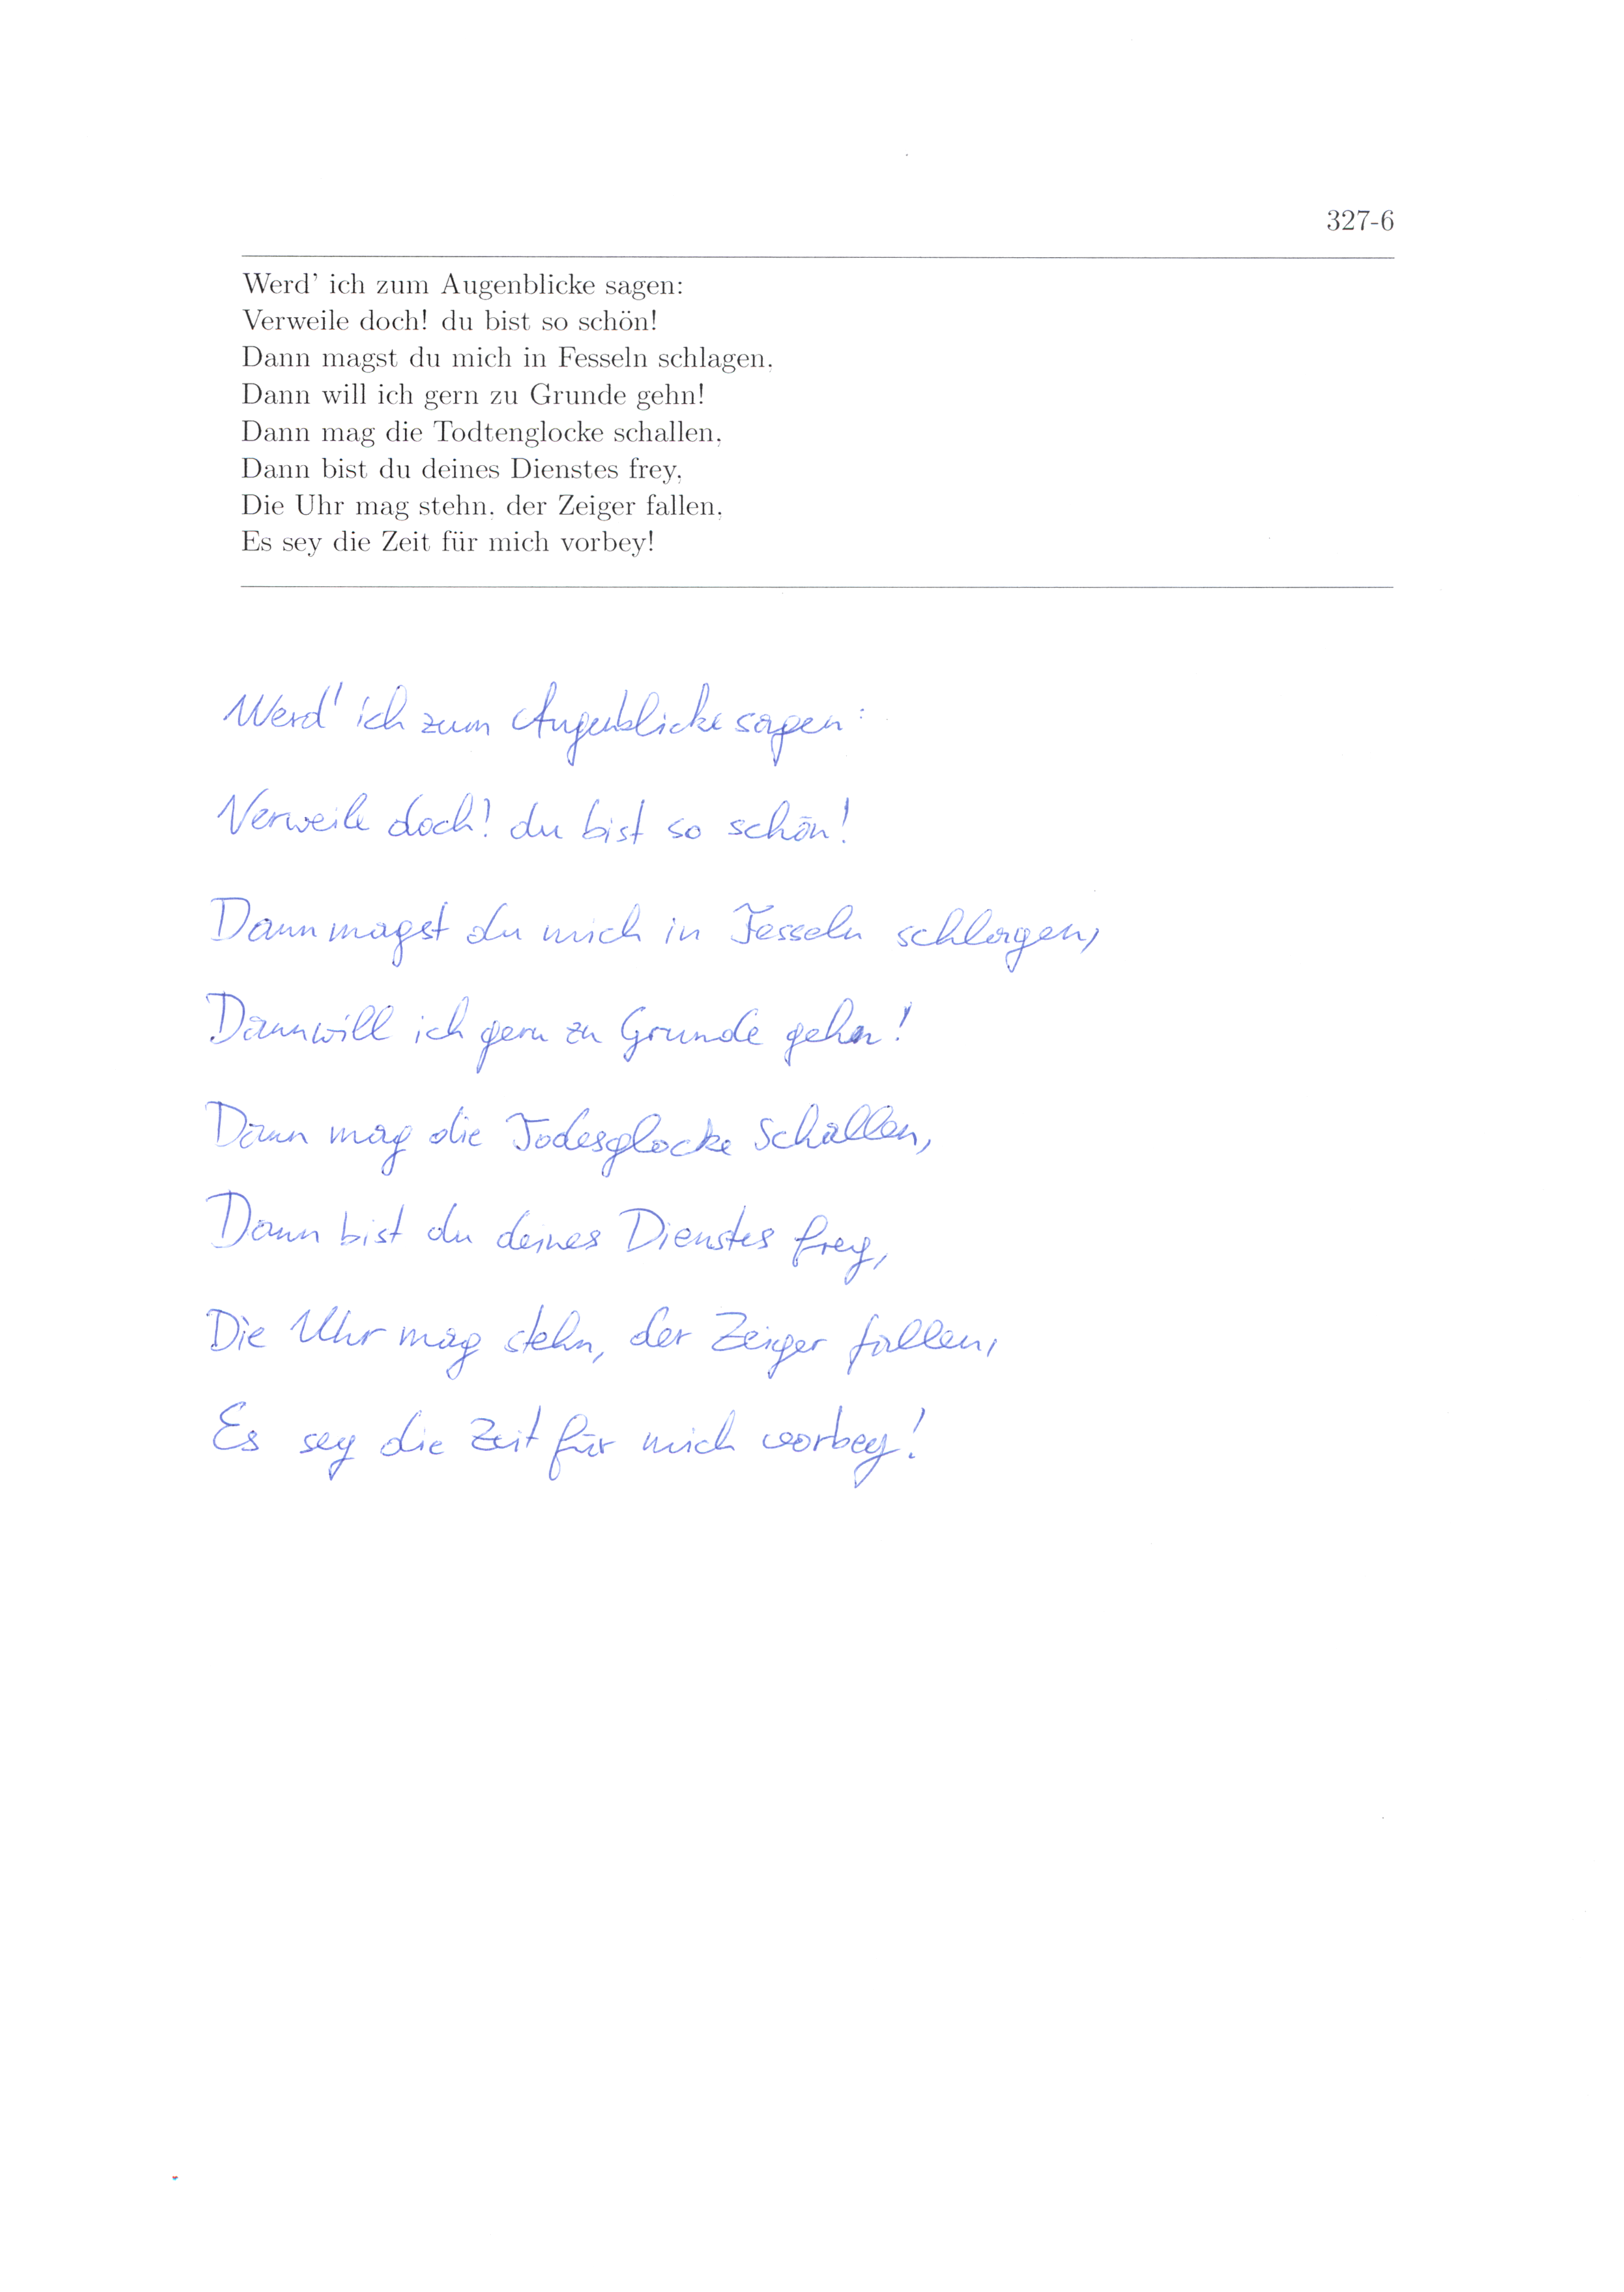 327-6
Werd' ich zum Augenblicke sagen:
Verweile doch! du bist so schön!
Dann magst du mich in Fesseln schlagen,
Dann will ich gern zu Grunde gehn!
Dann mag die Todtenglocke schallen,
Dann bist du deines Dienstes frey,
Die Uhr mag stehn, der Zeiger fallen,
Es sey die Zeit für mich vorbey!
Werd' ich zum Augenblicke sagen:
Verweile doch! du bist so schön!
Dann magst du mich in Fesseln schlagen,
Dann will ich gern zu Grunde gehn!
Dann mag die Todesglocke schallen,
Dann bist du deines Dienstes frey,
Die Uhr mag stehn, der Zeiger fallen,
Es sey die Zeit für mich vorbey!